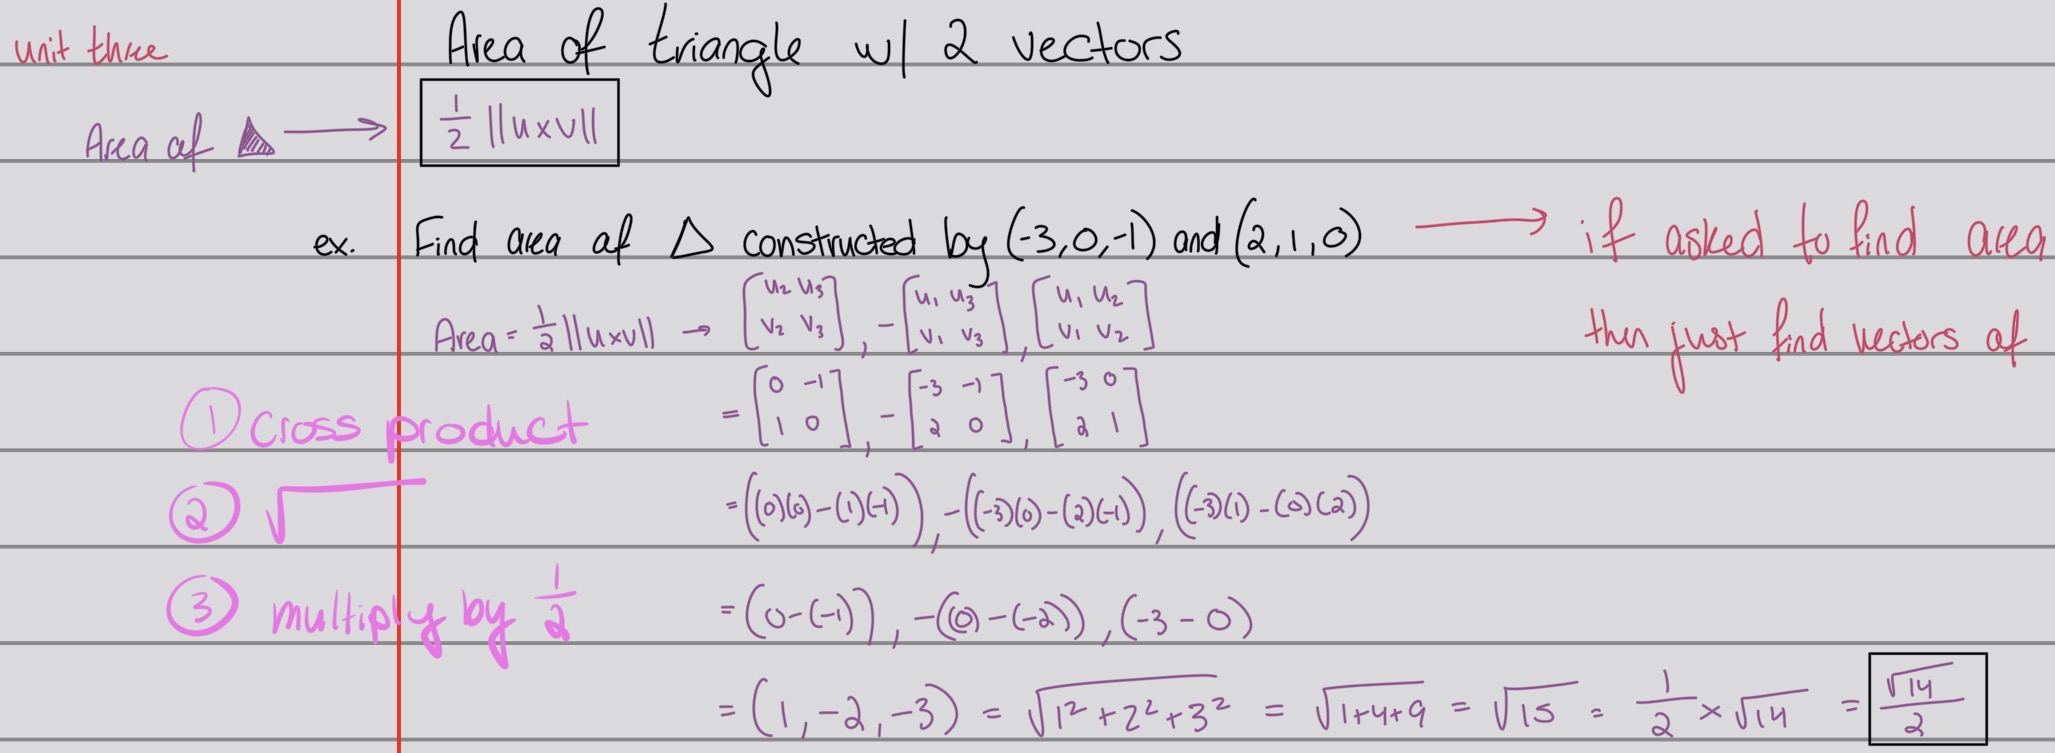 unit three
Area of triangle w/ 2 vectors
Area of ▲ → 1/2 ||u×v||
ex. Find area of △ constructed by (-3,0,-1) and (2,1,0) → if asked to find area
then just find vectors of
Area = 1/2 ||u×v|| → [u₂ u₃; v₂ v₃], -[u₁ u₃; v₁ v₃], [u₁ u₂; v₁ v₂]
① cross product
= [0 -1; 1 0], -[-3 -1; 2 0], [-3 0; 2 1]
② √
= ((0)(0)-(1)(-1)), -((-3)(0)-(2)(-1)), ((-3)(1)-(0)(2))
③ multiply by 1/2
= (0-(-1)), -((0)-(-2)), (-3-0)
= (1,-2,-3) = √(1²+2²+3²) = √(1+4+9) = √15 = 1/2 × √14 = √14/2